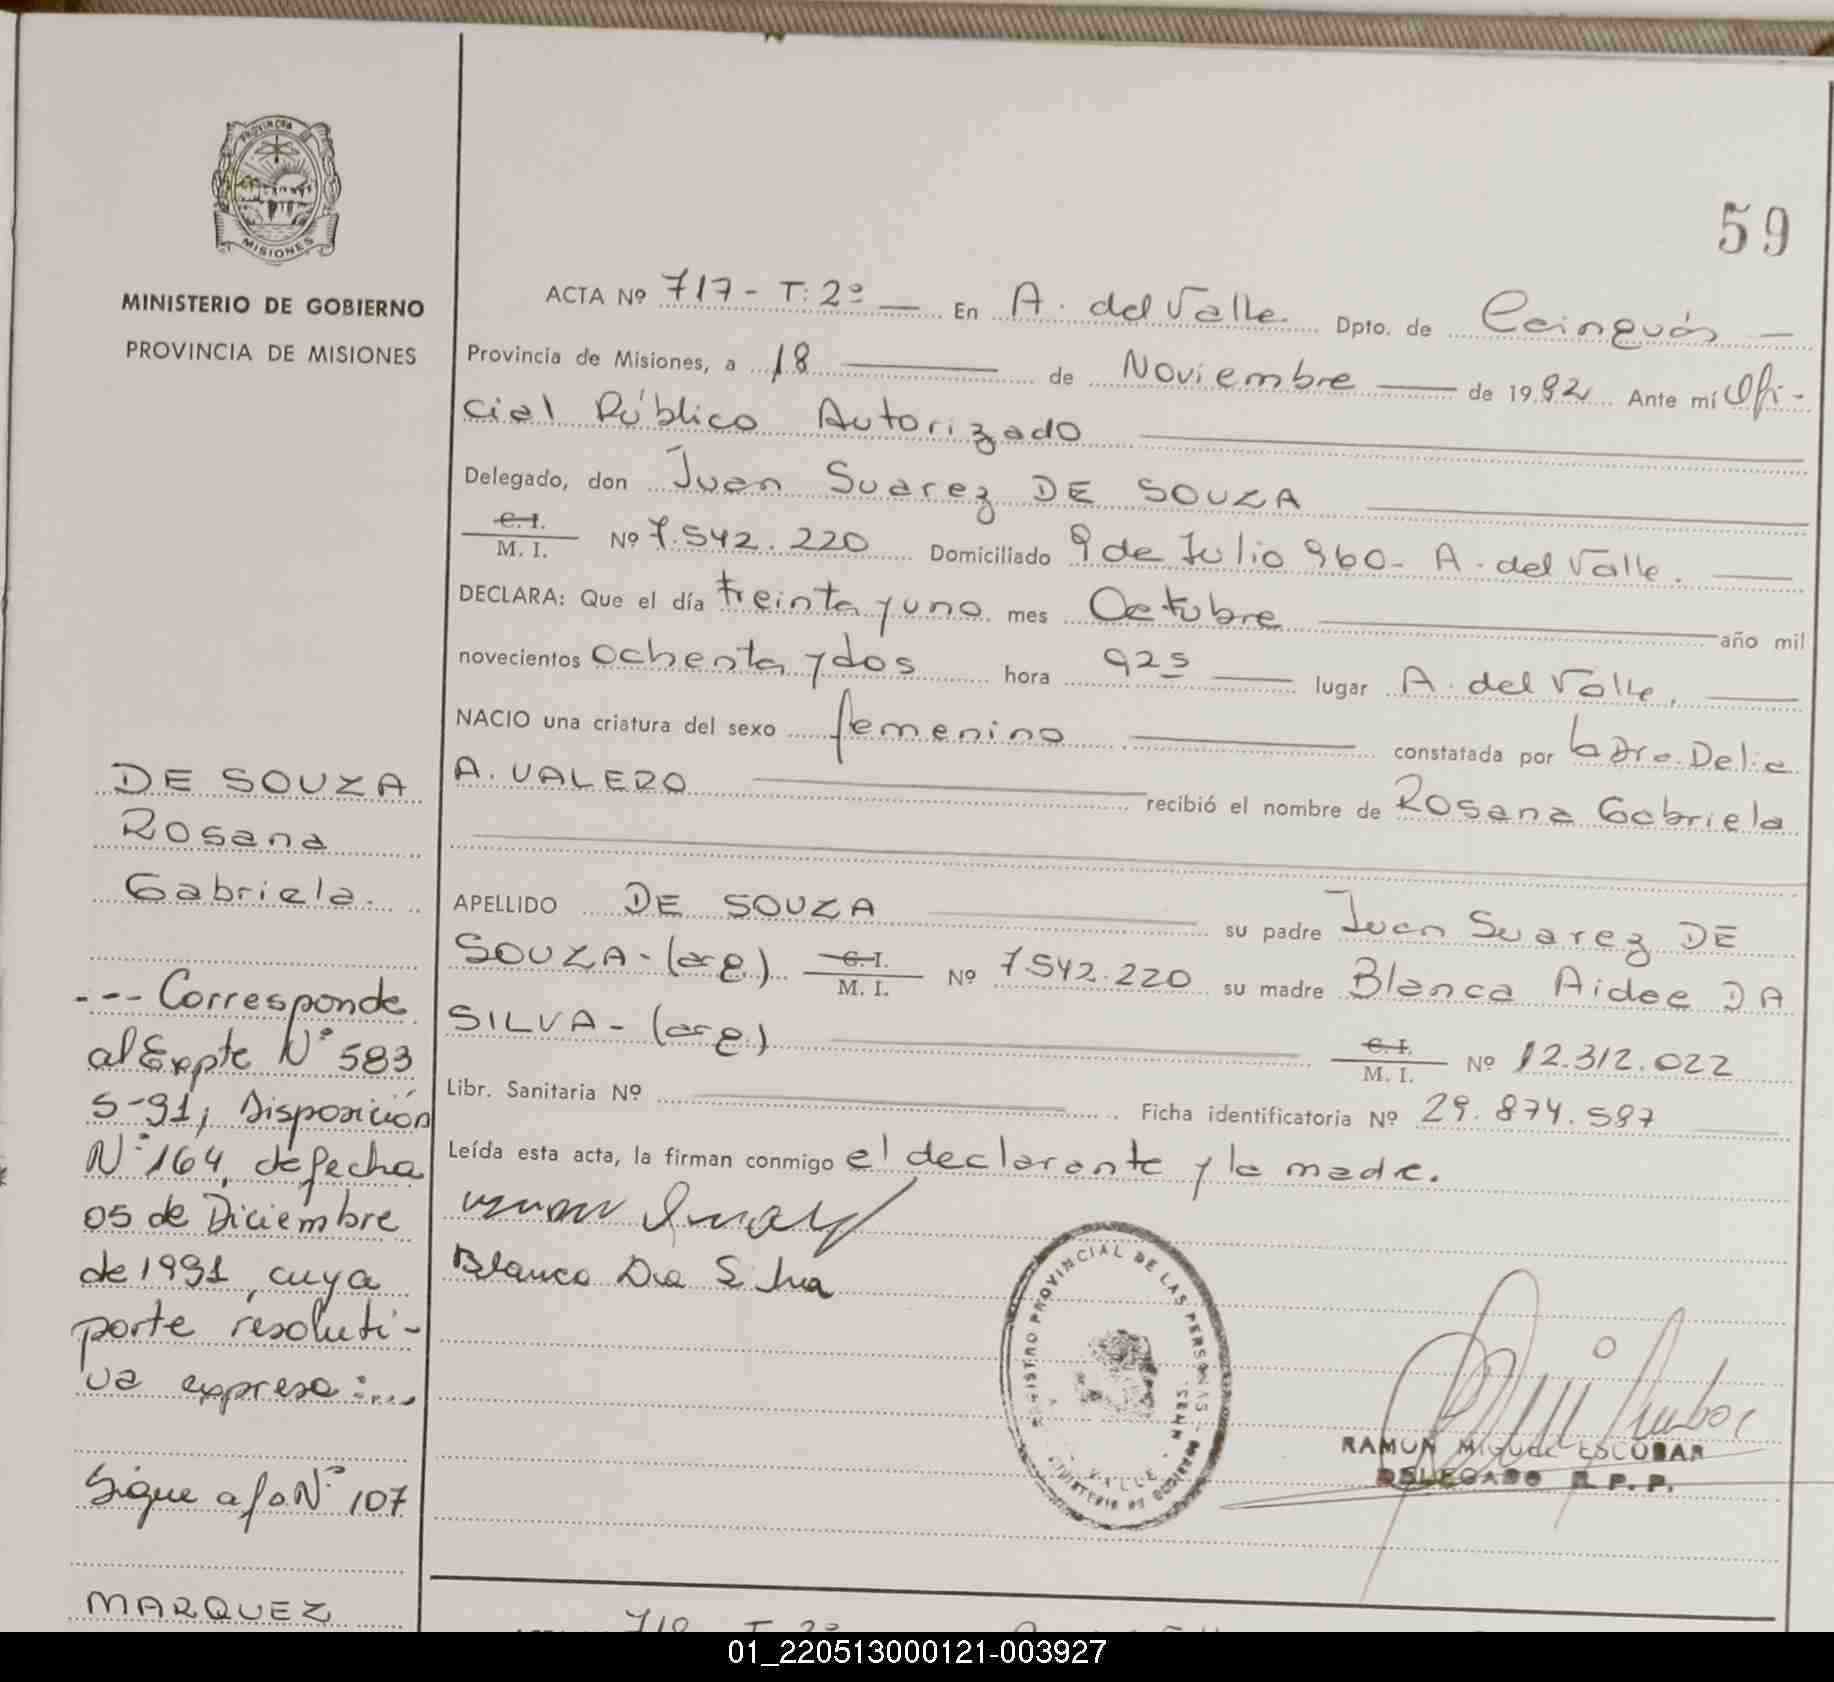 PROVINCIA
MISIONES
MINISTERIO DE GOBIERNO
PROVINCIA DE MISIONES
59
ACTA Nº 717 - T: 2º — En A. del Valle. Dpto. de Cainguás —
Provincia de Misiones, a 18 — de Noviembre — de 1982 Ante mí Ofi-
cial Público Autorizado —
Delegado, don Juan Suarez DE SOUZA —
C. I.
M. I. Nº 7.542.220 Domiciliado 9 de Julio 960 - A. del Valle. —
DECLARA: Que el día treinta y uno mes Octubre — año mil
novecientos ochenta y dos hora 925 — lugar A. del Valle. —
NACIO una criatura del sexo femenino — constatada por la Dra. Delia
A. VALERO — recibió el nombre de Rosana Gabriela
—
APELLIDO DE SOUZA — su padre Juan Suarez DE
SOUZA - (arg.) C. I. M. I. Nº 7.542.220 su madre Blanca Aidee DA
SILVA - (arg.) — C. I. M. I. Nº 12.312.022
Libr. Sanitaria Nº — Ficha identificatoria Nº 29.874.587 —
Leída esta acta, la firman conmigo el declarante y la madre.
Blanca Da Silva
REGISTRO PROVINCIAL DE LAS PERSONAS
MINISTERIO DE GOBIERNO
VALLE
RAMON MIGUEL ESCOBAR
DELEGADO R. P. P.
DE SOUZA
Rosana
Gabriela.
--- Corresponde
al Expte Nº 583
5-91, Disposición
Nº 164, de fecha
05 de Diciembre
de 1991, cuya
parte resoluti-
va expresa:...
Sigue a fo. Nº 107
MARQUEZ
718 T. 2º
01_220513000121-003927